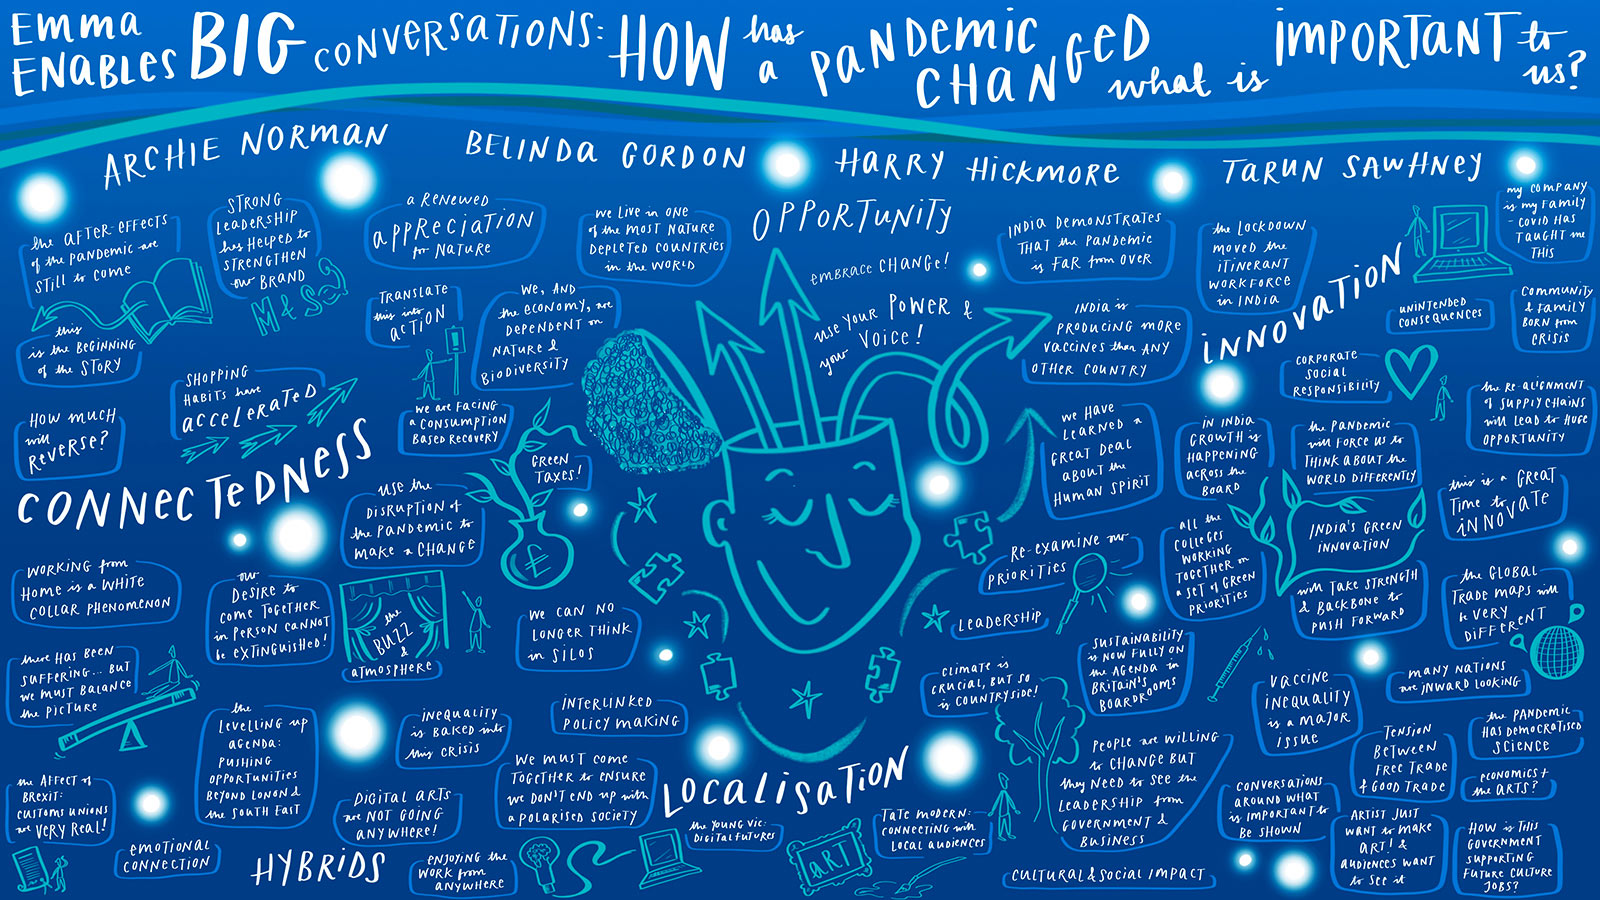 EMMA
ENABLES BIG CONVERSATIONS: HOW has a PANDEMIC CHANGED what is IMPORTANT to us?
ARCHIE NORMAN
BELINDA GORDON
HARRY HICKMORE
TARUN SAWHNEY
the AFTER-EFFECTS
of the PANDEMIC are
STILL to COME
this
is the BEGINNING
of the STORY
STRONG
LEADERSHIP
has HELPED to
STRENGTHEN
our BRAND
M&S
a RENEWED
APPRECIATION
for NATURE
we LIVE in ONE
of the MOST NATURE
DEPLETED COUNTRIES
in the WORLD
TRANSLATE
this into
ACTION
WE, AND
the ECONOMY, are
DEPENDENT on
NATURE &
BIODIVERSITY
SHOPPING
HABITS have
ACCELERATED
HOW MUCH
will
REVERSE?
WE ARE FACING
a CONSUMPTION
BASED RECOVERY
GREEN
TAXES!
£
CONNECTEDNESS
USE the
DISRUPTION of
the PANDEMIC to
MAKE a CHANGE
WORKING from
HOME is a WHITE
COLLAR PHENOMENON
our
DESIRE to
COME TOGETHER
in PERSON CANNOT
be EXTINGUISHED!
the
BUZZ
&
ATMOSPHERE
WE CAN NO
LONGER THINK
in SILOS
there HAS BEEN
SUFFERING... BUT
WE MUST BALANCE
the PICTURE
the
LEVELLING UP
AGENDA:
PUSHING
OPPORTUNITIES
BEYOND LONON &
the SOUTH EAST
INEQUALITY
is BAKED into
this CRISIS
INTERLINKED
POLICY MAKING
WE MUST COME
TOGETHER to ENSURE
we DON'T END UP with
a POLARISED SOCIETY
the AFFECT of
BREXIT:
CUSTOMS UNIONS
are VERY REAL!
EMOTIONAL
CONNECTION
DIGITAL ARTS
are NOT GOING
ANYWHERE!
HYBRIDS
ENJOYING the
WORK from
ANYWHERE
OPPORTUNITY
EMBRACE CHANGE!
use YOUR POWER &
your VOICE!
INDIA DEMONSTRATES
THAT the PANDEMIC
is FAR from OVER
INDIA is
PRODUCING MORE
VACCINES than ANY
OTHER COUNTRY
the LOCKDOWN
MOVED the
ITINERANT
WORKFORCE
in INDIA
my COMPANY
is my FAMILY
- COVID HAS
TAUGHT me
THIS
INNOVATION
UNINTENDED
CONSEQUENCES
COMMUNITY
& FAMILY
BORN from
CRISIS
CORPORATE
SOCIAL
RESPONSIBILITY
the RE-ALIGNMENT
of SUPPLY CHAINS
will LEAD to HUGE
OPPORTUNITY
we HAVE
LEARNED a
GREAT DEAL
ABOUT the
HUMAN SPIRIT
IN INDIA
GROWTH is
HAPPENING
ACROSS the
BOARD
the PANDEMIC
will FORCE US to
THINK ABOUT the
WORLD DIFFERENTLY
this is a GREAT
TIME to
INNOVATE
RE-EXAMINE our
PRIORITIES
ALL the
COLLEGES
WORKING
TOGETHER on
a SET of GREEN
PRIORITIES
INDIA'S GREEN
INNOVATION
will TAKE STRENGTH
& BACKBONE to
PUSH FORWARD
the GLOBAL
TRADE MAPS will
be VERY
DIFFERENT
LEADERSHIP
CLIMATE is
CRUCIAL, BUT SO
is COUNTRYSIDE!
SUSTAINABILITY
is NOW FULLY ON
the AGENDA in
BRITAIN'S
BOARDROOMS
VACCINE
INEQUALITY
is a MAJOR
ISSUE
MANY NATIONS
are INWARD LOOKING
PEOPLE are WILLING
to CHANGE BUT
they NEED to SEE the
LEADERSHIP from
GOVERNMENT &
BUSINESS
TENSION
BETWEEN
FREE TRADE
& GOOD TRADE
the PANDEMIC
HAS DEMOCRATISED
SCIENCE
ECONOMICS +
the ARTS?
LOCALISATION
the YOUNG VIC:
DIGITAL FUTURES
ART
TATE MODERN:
CONNECTING with
LOCAL AUDIENCES
CULTURAL & SOCIAL IMPACT
CONVERSATIONS
AROUND WHAT
is IMPORTANT to
BE SHOWN
ARTIST JUST
WANT to MAKE
ART! &
AUDIENCES WANT
to SEE it
HOW is THIS
GOVERNMENT
SUPPORTING
FUTURE CULTURE
JOBS?